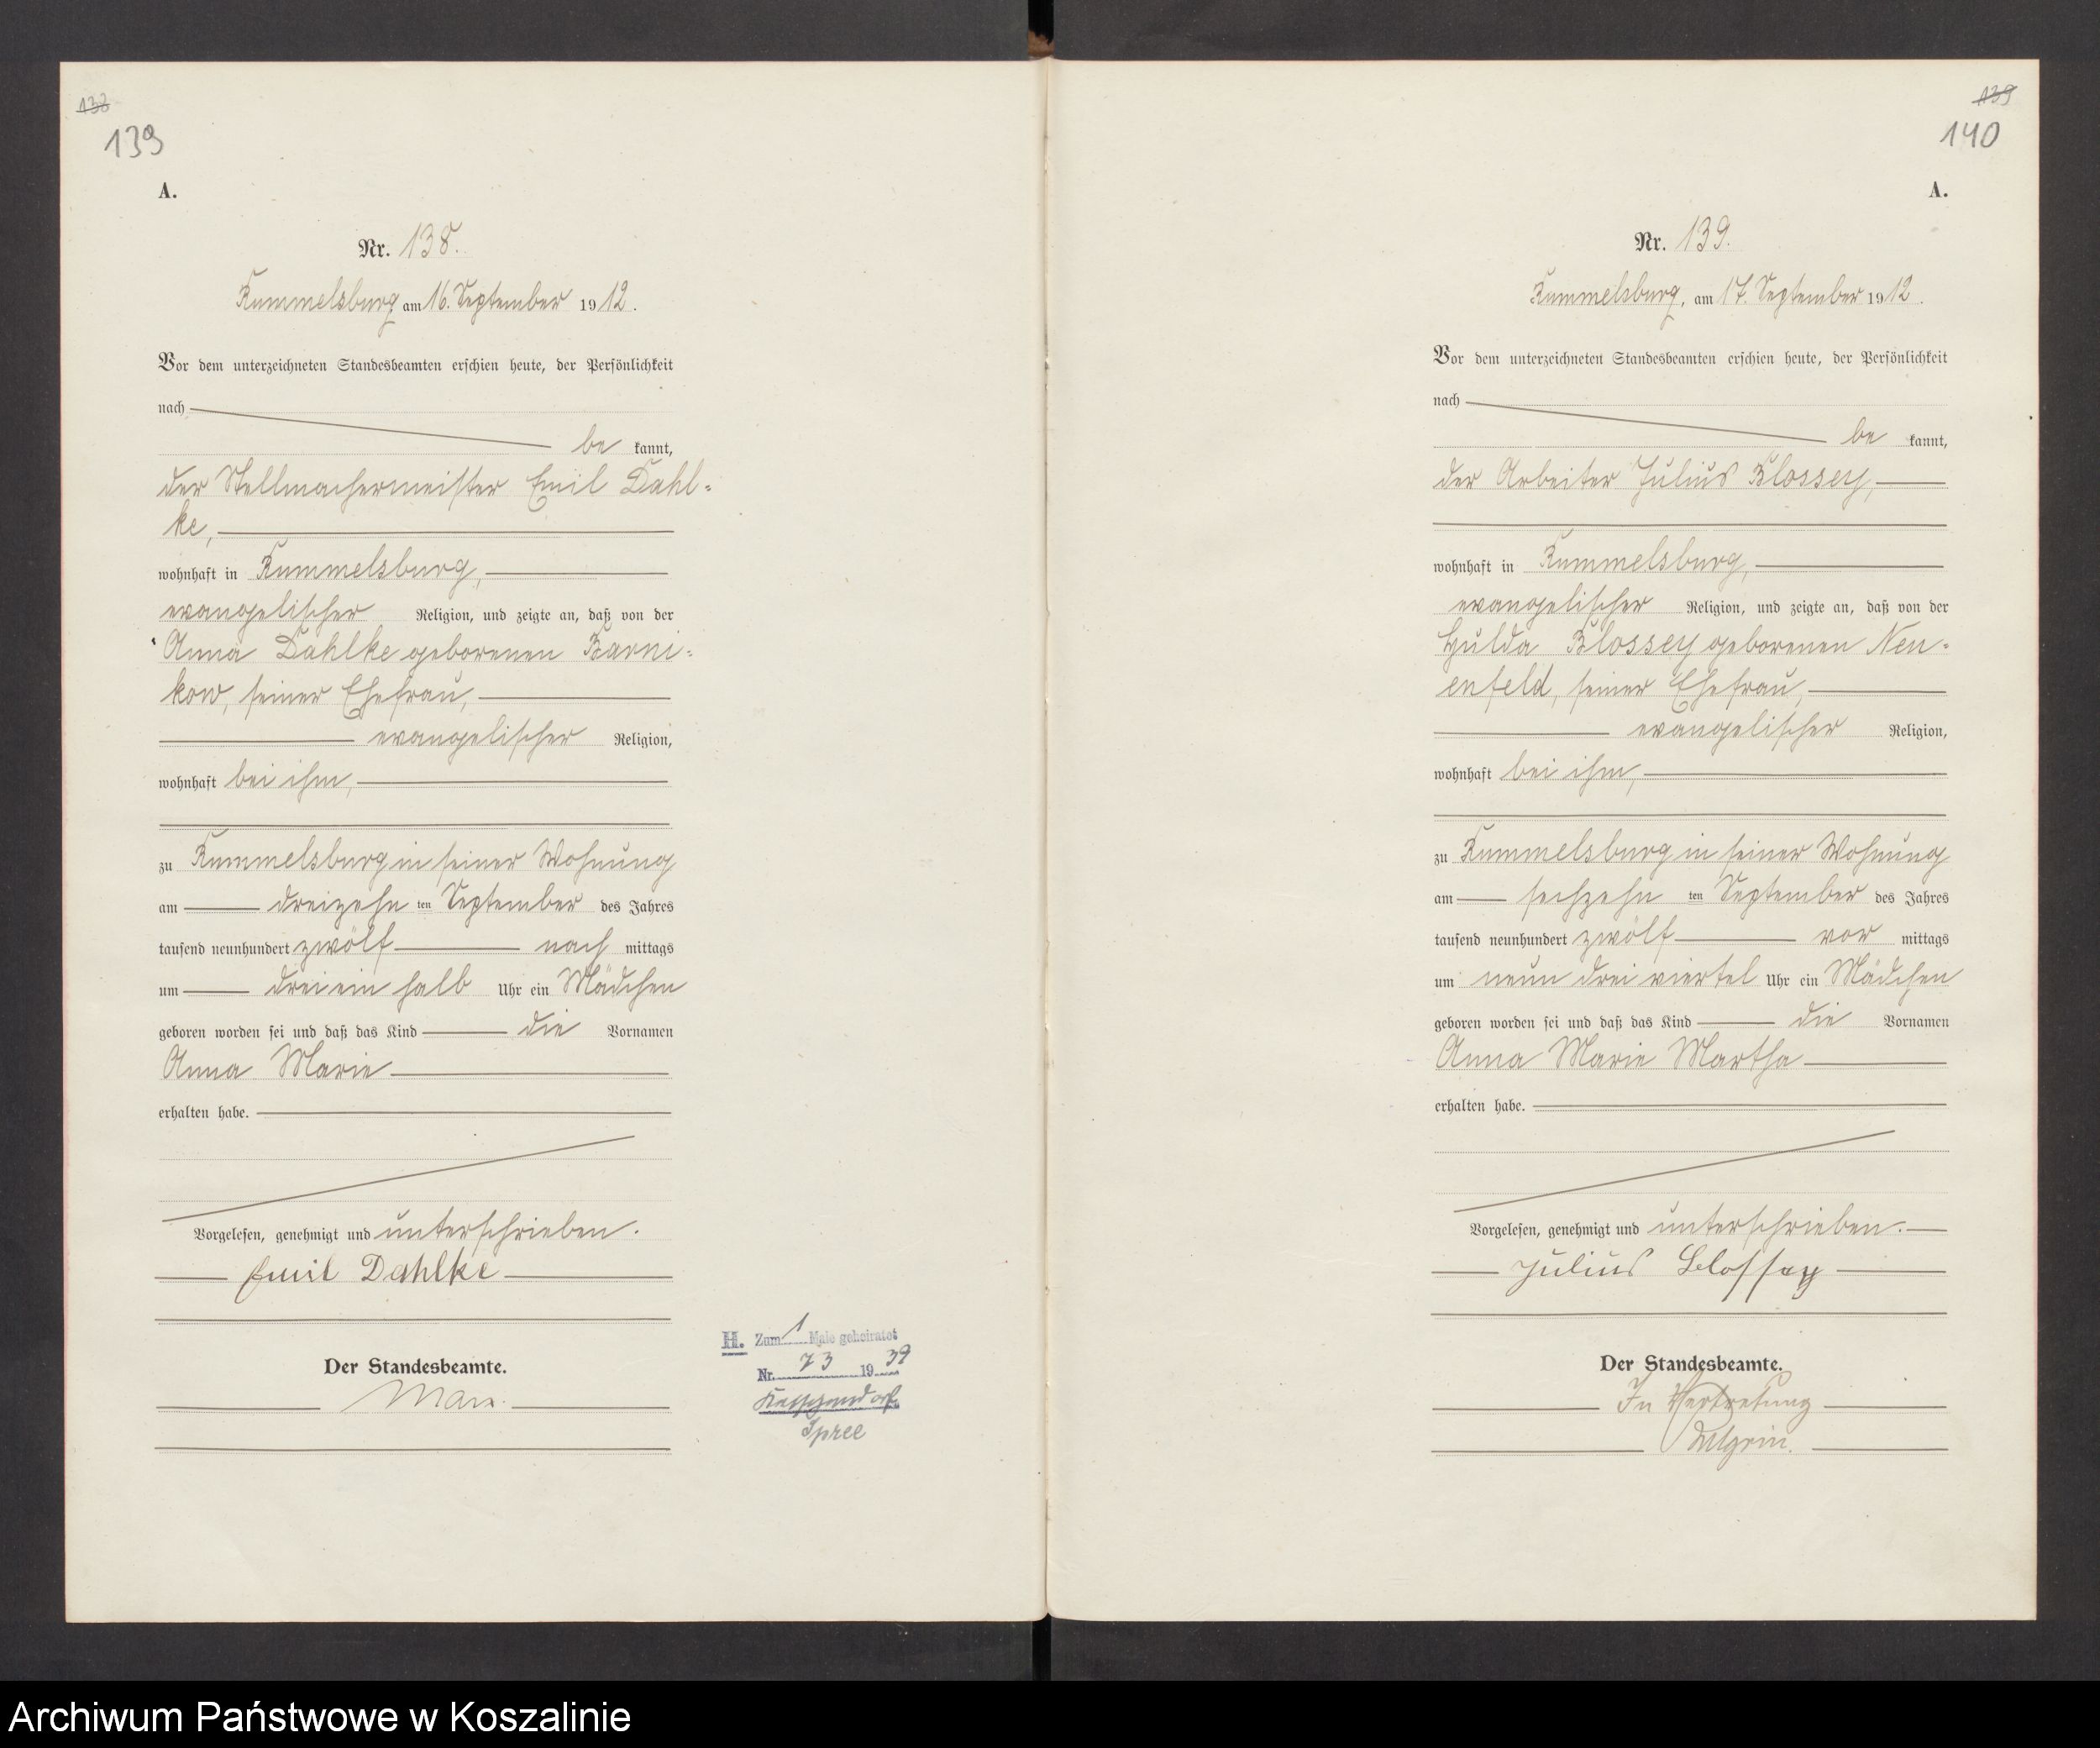 138
139
A.
Nr. 138.
Rummelsburg am 16. September 1912.
Vor dem unterzeichneten Standesbeamten erschien heute, der Persönlichkeit
nach
be kannt,
der Stellmachermeister Emil Dahl-
ke,
wohnhaft in Rummelsburg,
evangelischer Religion, und zeigte an, daß von der
Anna Dahlke geborenen Barni-
kow, seiner Ehefrau,
evangelischer Religion,
wohnhaft bei ihm,
zu Rummelsburg in seiner Wohnung
am dreizehn ten September des Jahres
tausend neunhundert zwölf nach mittags
um drei ein halb Uhr ein Mädchen
geboren worden sei und daß das Kind die Vornamen
Anna Marie
erhalten habe.
Vorgelesen, genehmigt und unterschrieben.
Emil Dahlke
Der Standesbeamte.
H. Zum 1 Male geheiratet
Nr. 73 1939
Spree
139
140
A.
Nr. 139.
Rummelsburg, am 17. September 1912.
Vor dem unterzeichneten Standesbeamten erschien heute, der Persönlichkeit
nach
be kannt,
der Arbeiter Julius Blossey,
wohnhaft in Rummelsburg,
evangelischer Religion, und zeigte an, daß von der
Hulda Blossey geborenen Neu-
enfeld, seiner Ehefrau,
evangelischer Religion,
wohnhaft bei ihm,
zu Rummelsburg in seiner Wohnung
am sechzehn ten September des Jahres
tausend neunhundert zwölf vor mittags
um neun drei viertel Uhr ein Mädchen
geboren worden sei und daß das Kind die Vornamen
Anna Marie Martha
erhalten habe.
Vorgelesen, genehmigt und unterschrieben.
Julius Blossey
Der Standesbeamte.
In Vertretung
Archiwum Państwowe w Koszalinie